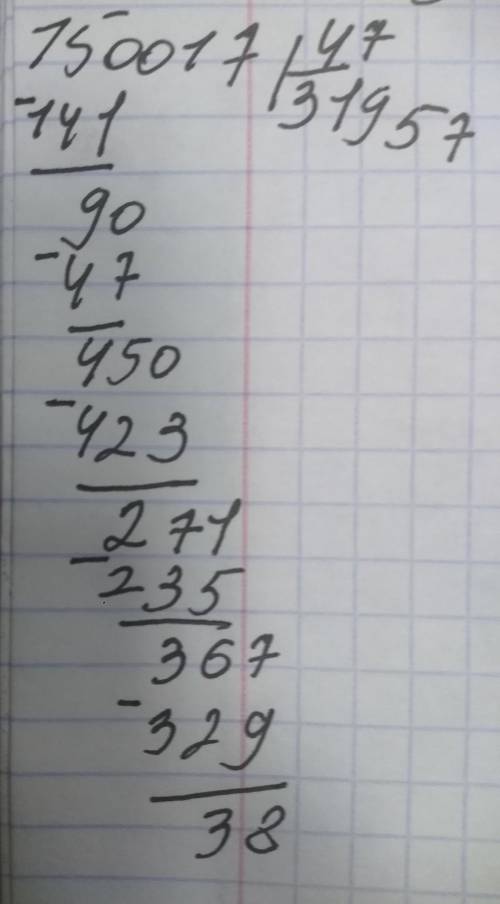 150017 47
-141 31957
90
-47
450
-423
271
-235
367
-329
38